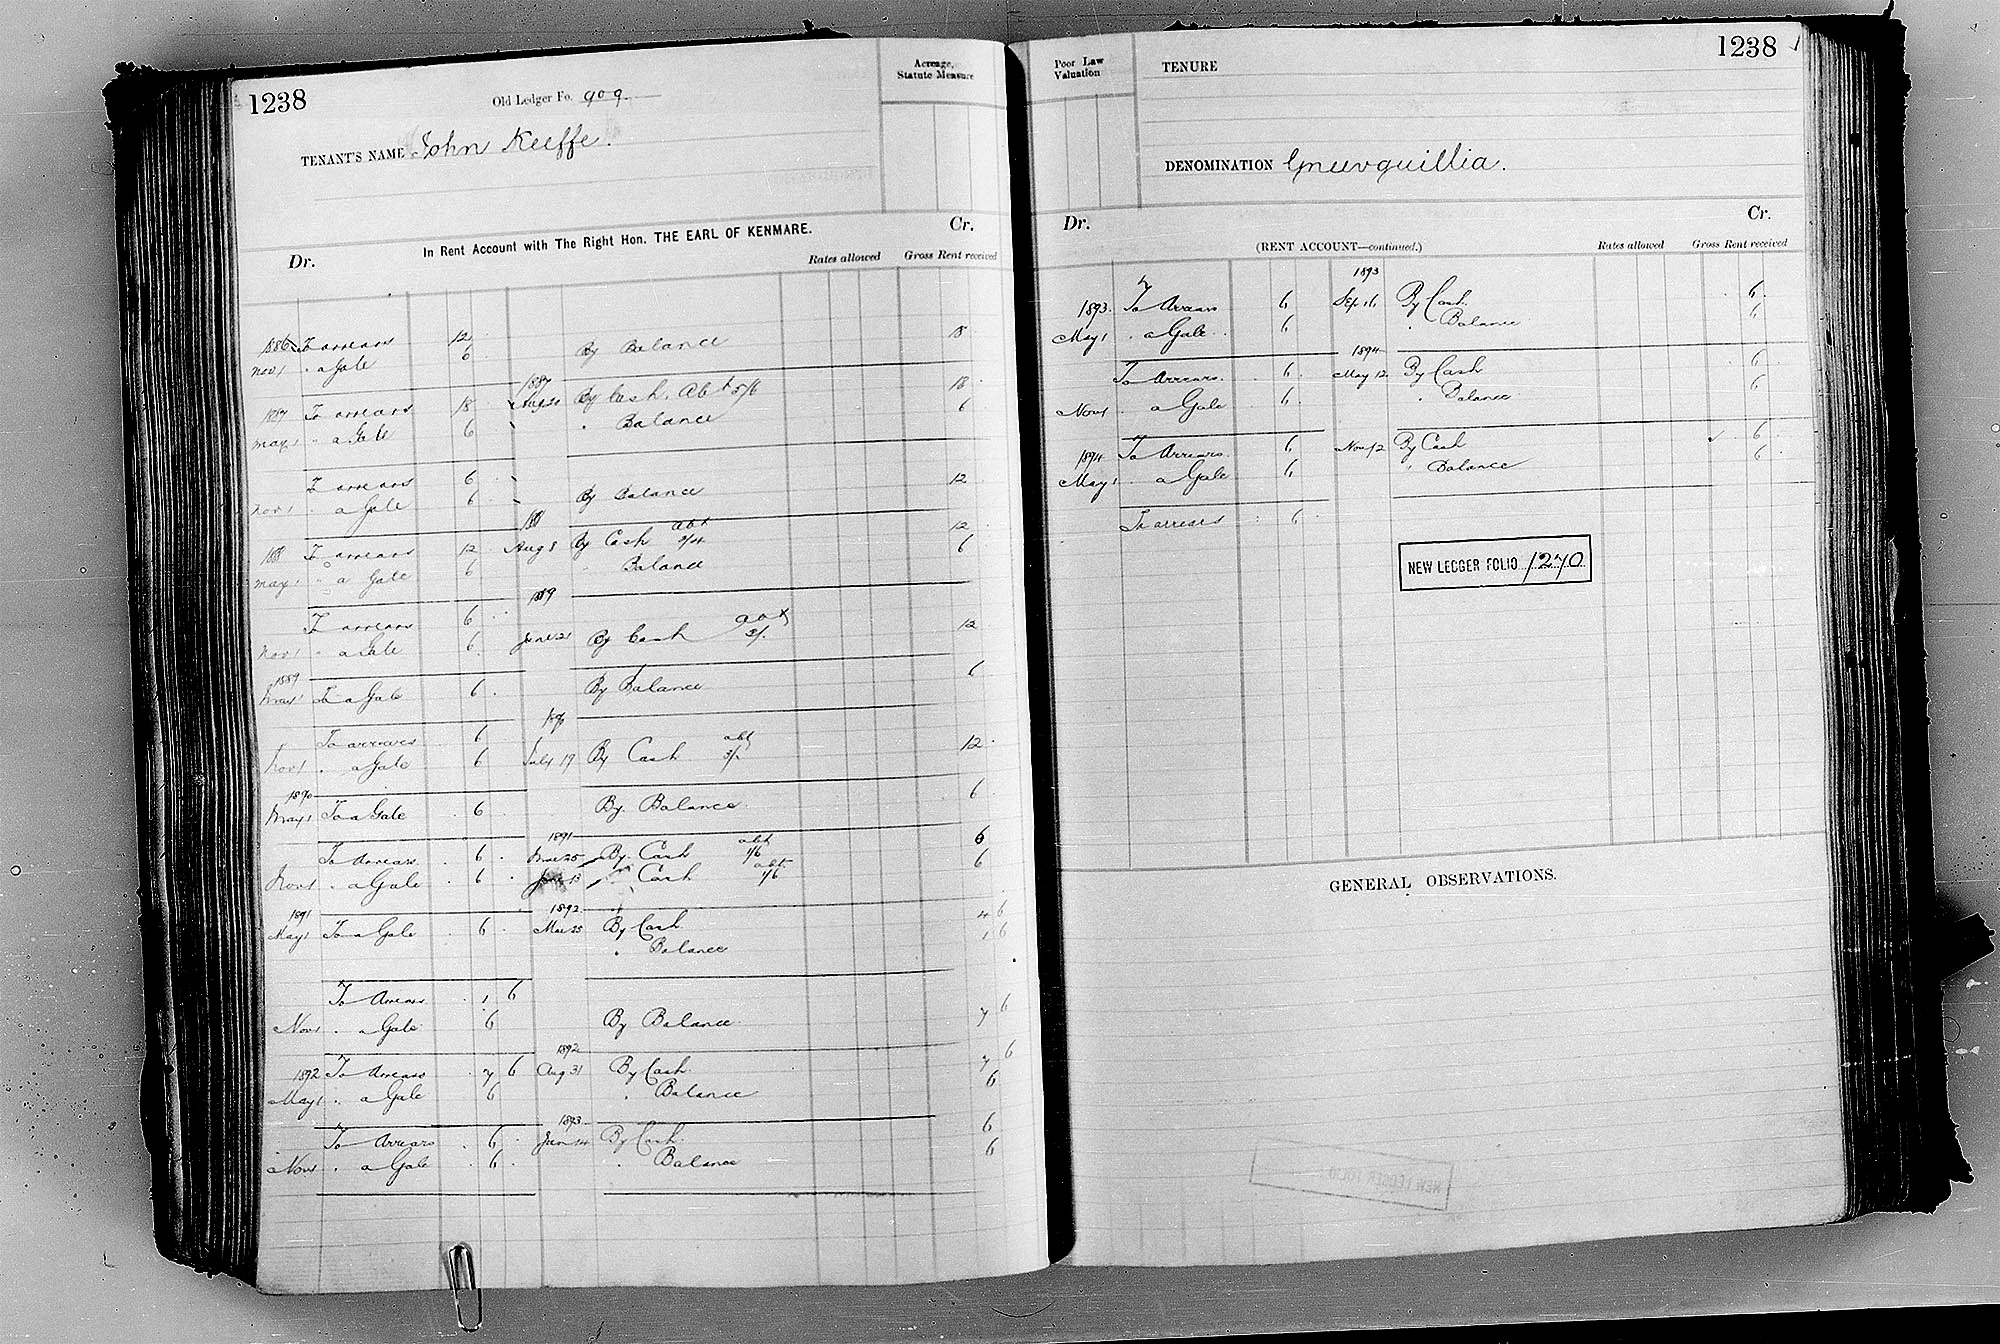 1238
Old Ledger Fo. 909.
Acreage, Statute Measure
TENANT'S NAME John Keeffe.
In Rent Account with The Right Hon. THE EARL OF KENMARE.
Dr.
Cr.
Rates allowed
Gross Rent received
1886 To arrears 12
Nov 1 " a Gale 6 By Balance 18
1887
1887 To arrears 18 Aug 20 By Cash. Abt 5/6 18
May 1 " a Gale 6 " Balance 6
To arrears 6
Nov 1 " a Gale 6 By Balance 12
188
188 To arrears 12 Aug 8 By Cash abt 3/4 12
May 1 " a Gale 6 " Balance 6
1889
To arrears 6
Nov 1 " a Gale 6 June 21 By Cash abt 3/. 12
1889
May 1 To a Gale 6 By Balance 6
1890
To arrears 6
Nov 1 " a Gale 6 July 19 By Cash abt 3/. 12
1890
May 1 To a Gale 6 By Balance 6
1891
To Arrears 6 Mar 25 By Cash abt 1/6 6
Nov 1 " a Gale 6 June 13 " Cash abt 1/6 6
1891 1892
May 1 To a Gale 6 Mar 25 By Cash 4 6
" Balance 1 6
To Arrears 1 6
Nov 1 " a Gale 6 By Balance 7 6
1892
1892 To Arrears 7 6 Aug 31 By Cash 7 6
May 1 " a Gale 6 " Balance 6
1893
To Arrears 6 Jan 14 By Cash 6
Nov 1 " a Gale 6 " Balance 6
1238
Poor Law Valuation
TENURE
DENOMINATION Gneevquillia.
Dr.
Cr.
(RENT ACCOUNT—continued.)
Rates allowed
Gross Rent received
1893
1893. To Arrears 6 Sep 16 By Cash 6
May 1 " a Gale 6 " Balance 6
1894
To Arrears 6 May 12 By Cash 6
Nov 1 " a Gale 6 " Balance 6
1894 To Arrears 6 Nov 12 By Cash 6
May 1 " a Gale 6 " Balance 6
To arrears 6
NEW LEDGER FOLIO 1270
GENERAL OBSERVATIONS.
NEW LEDGER FOLIO